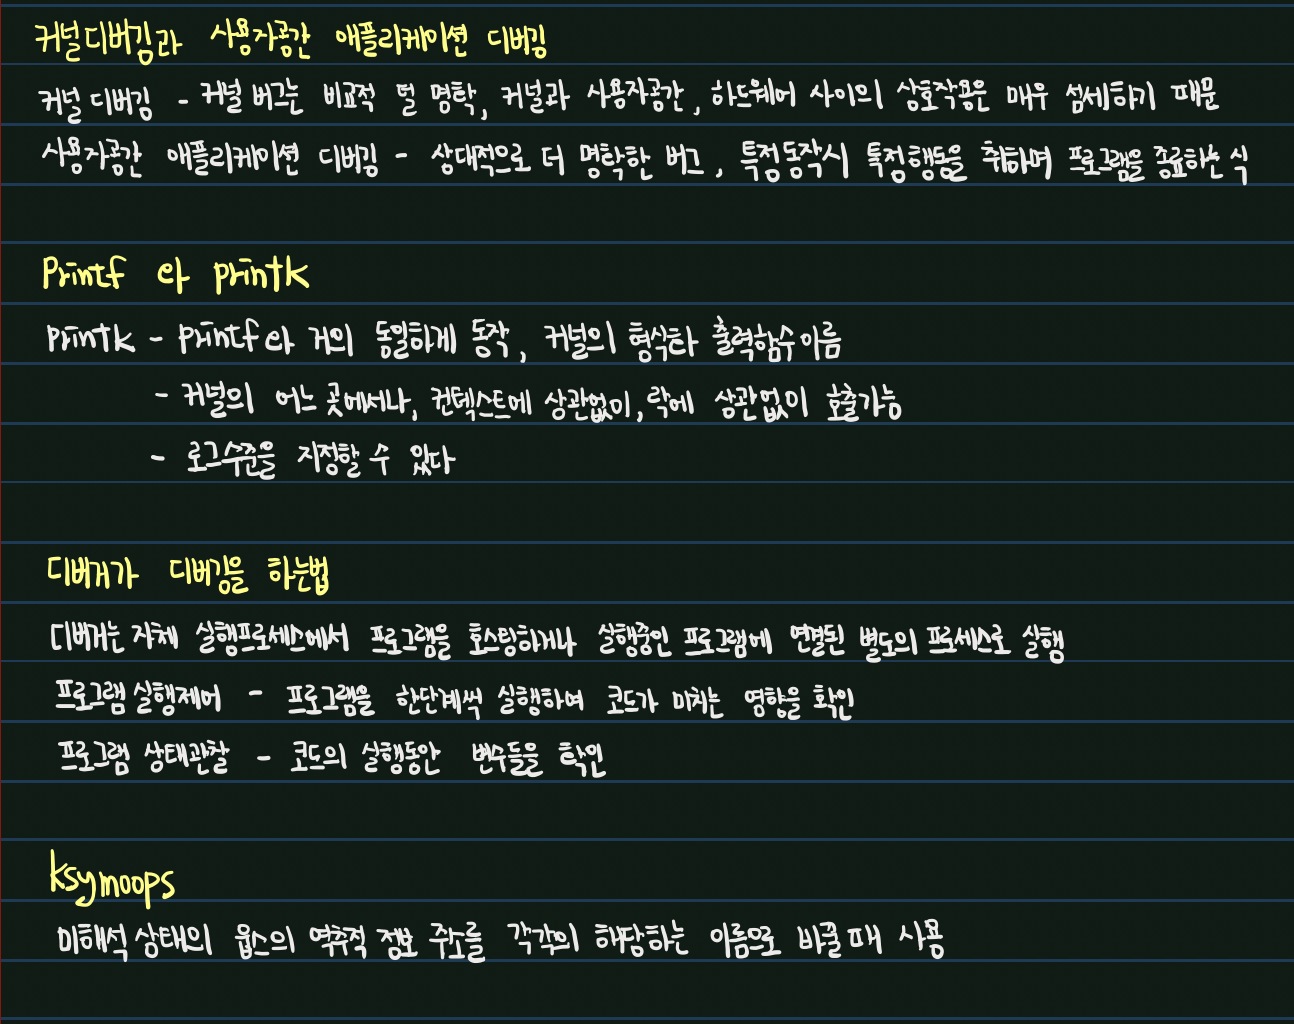 커널디버깅과 사용자공간 애플리케이션 디버깅
커널 디버깅 - 커널 버그는 비교적 덜 명확, 커널과 사용자공간, 하드웨어 사이의 상호작용은 매우 섬세하기 때문
사용자공간 애플리케이션 디버깅 - 상대적으로 더 명확한 버그, 특정동작시 특정행동을 취하며 프로그램을 종료하는 식
Printf 와 printk
printk - printf와 거의 동일하게 동작, 커널의 형식화 출력함수이름
- 커널의 어느 곳에서나, 컨텍스트에 상관없이, 락에 상관없이 호출가능
- 로그수준을 지정할 수 있다
디버거가 디버깅을 하는법
디버거는 자체 실행프로세스에서 프로그램을 호스팅하거나 실행중인 프로그램에 연결된 별도의 프로세스로 실행
프로그램 실행제어 - 프로그램을 한단계씩 실행하여 코드가 미치는 영향을 확인
프로그램 상태관찰 - 코드의 실행동안 변수들을 확인
ksymoops
미해석 상태의 웁스의 역추적 정보 주소를 각각의 해당하는 이름으로 바꿀 때 사용